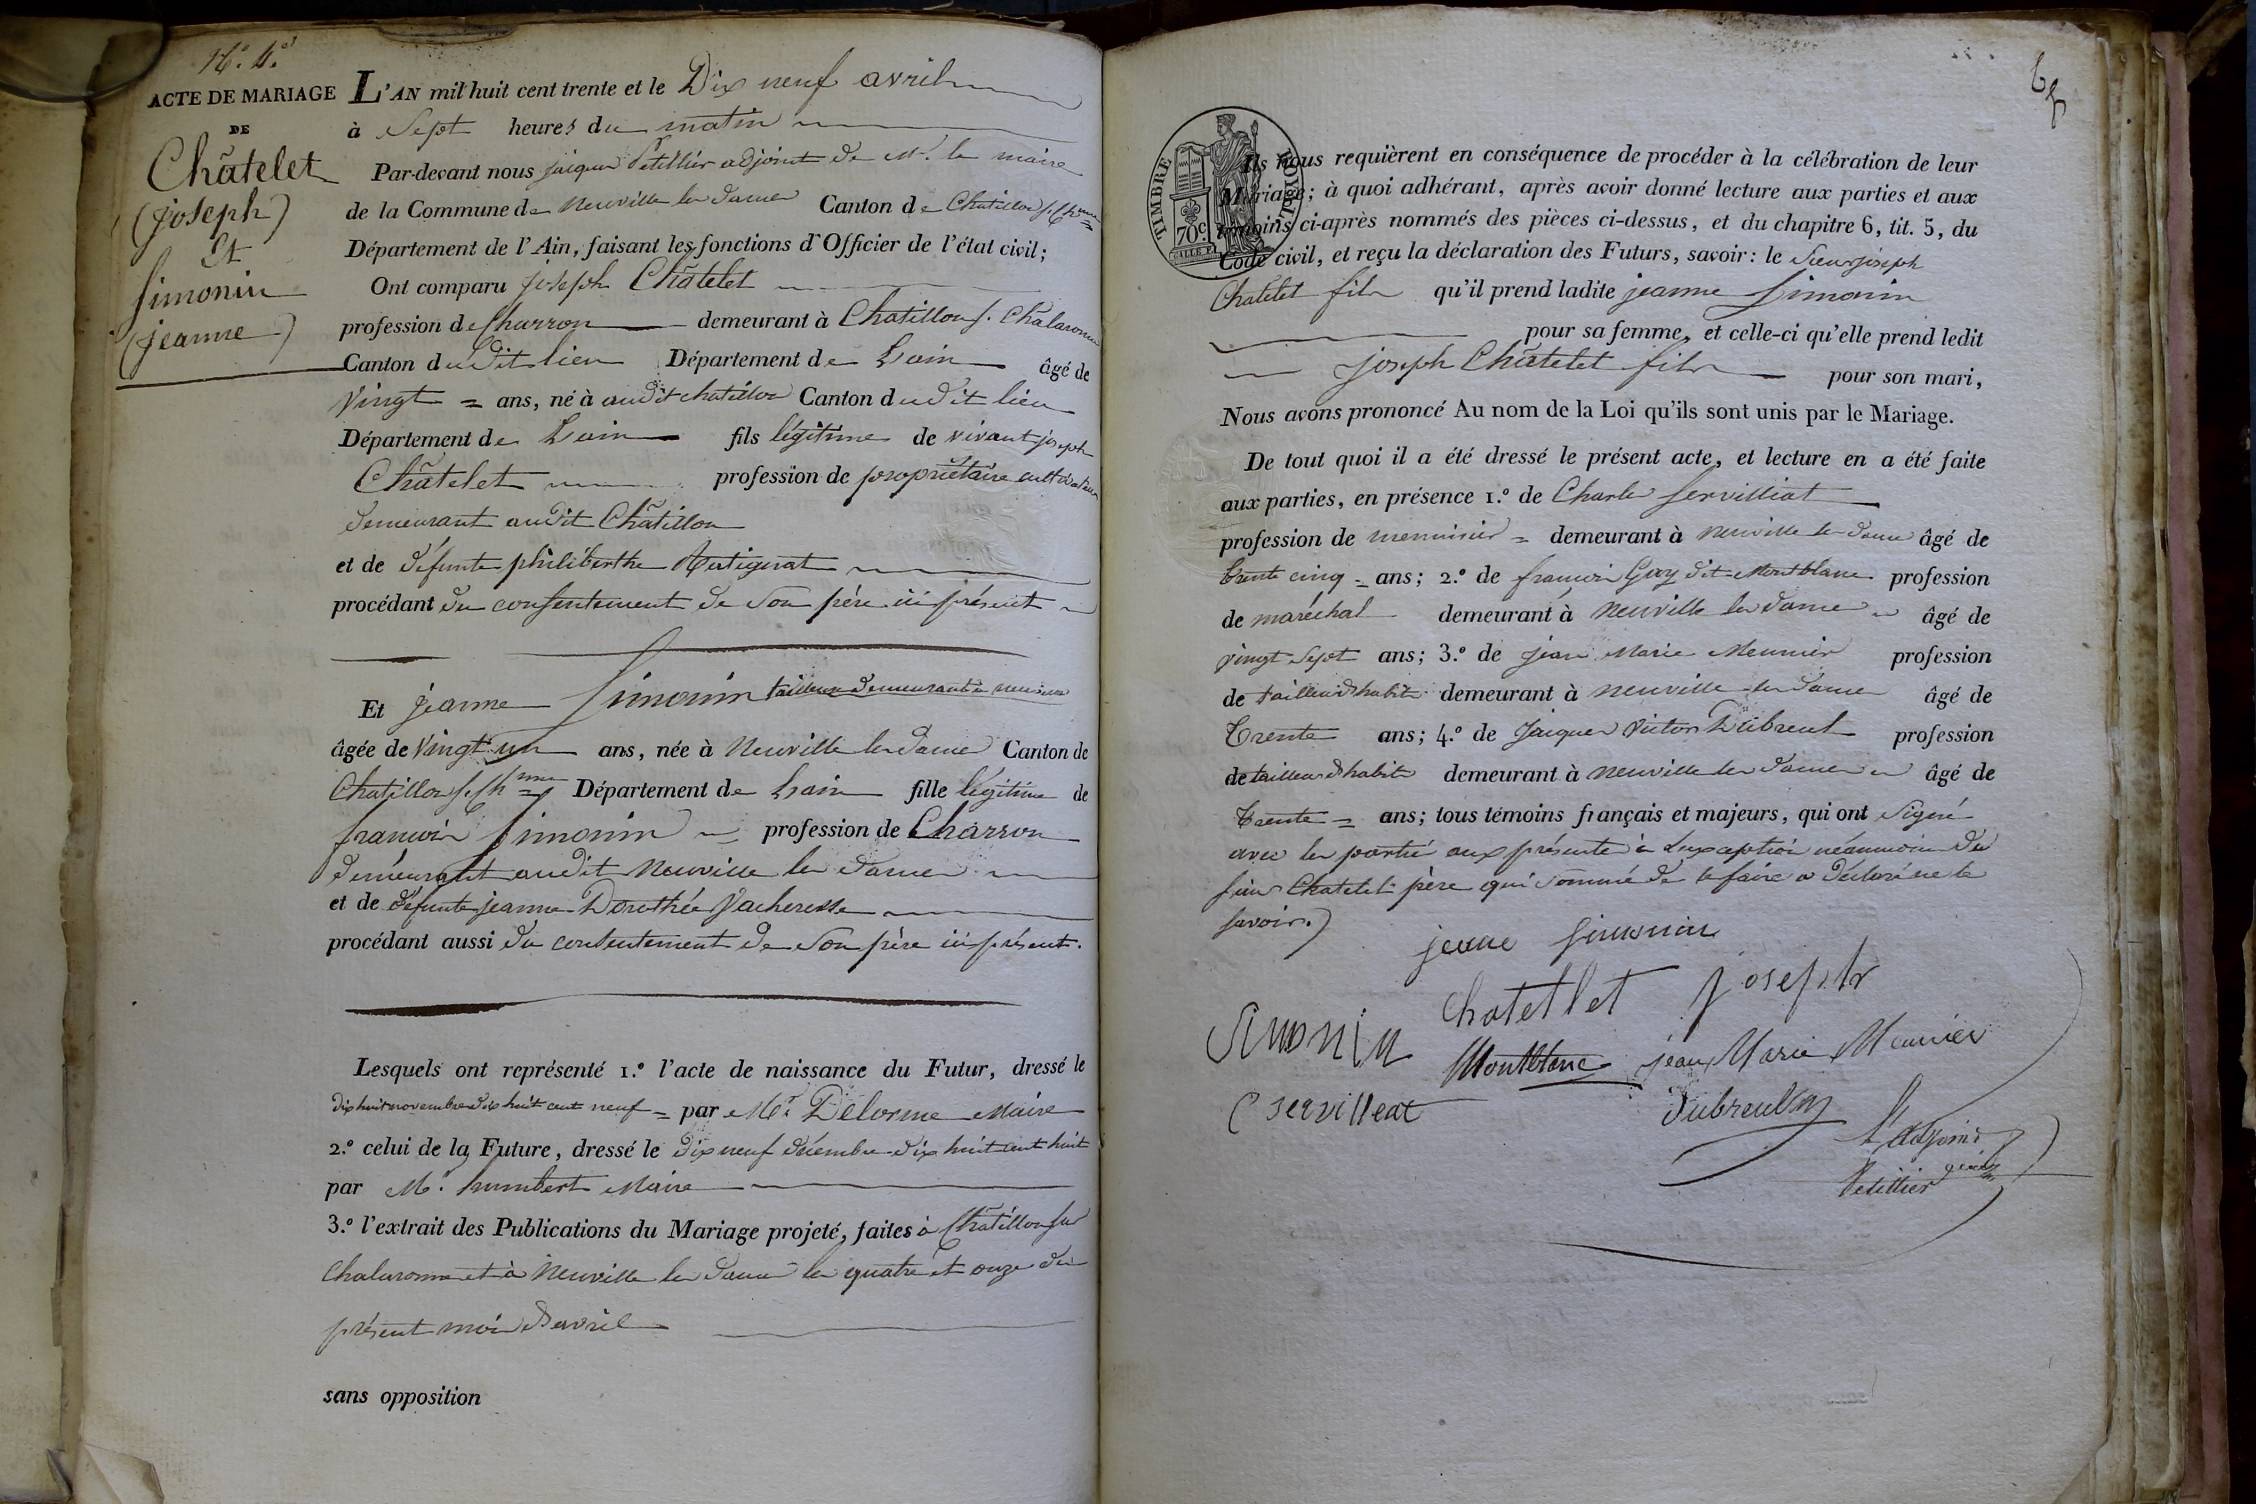 N.° 4.e
ACTE DE MARIAGE
DE
Châtelet
(joseph)
Et
Simonin
(jeanne)
L'AN mil huit cent trente et le Dix neuf avril
à Sept heures du matin
Par-devant nous jaique Petillier adjoint de Mr. le maire
de la Commune de Neuville les Dames Canton de Chatillon s. Ch.nne
Département de l'Ain, faisant les fonctions d'Officier de l'état civil;
Ont comparu joseph Châtelet
profession de Charron demeurant à Chatillon s. Chalaronne
Canton du dit lieu Département de Lain âgé de
Vingt = ans, né à audit chatillon Canton du dit lieu
Département de Lain fils légitime de vivant joseph
Châtelet profession de propriétaire cultivateur
demeurant audit Châtillon
et de défunte philiberthe
procédant du consentement de son père ici présent
Et jeanne Simonin tailleuse demeurant à neuville
âgée de Vingt un ans, née à Neuville les Dames Canton de
Chatillon s. Ch.nne = Département de Lain fille légitime de
francois Simonin profession de Charron
demeurant audit Neuville les dames
et de défunte jeanne Dorothée Vacheresse
procédant aussi du consentement de son père ici présent.
Lesquels ont représenté 1.° l'acte de naissance du Futur, dressé le
dix huit novembre dix huit cent neuf = par Mr. Delorme Maire
2.° celui de la Future, dressé le dix neuf décembre dix huit cent huit
par Mr. humbert Maire
3.° l'extrait des Publications du Mariage projeté, faites à Châtillon sur
Chalaronne et à Neuville les dames les quatre et onze du
présent mois d'avril
sans opposition
TIMBRE ROYAL
70c
Ils nous requièrent en conséquence de procéder à la célébration de leur
Mariage; à quoi adhérant, après avoir donné lecture aux parties et aux
témoins ci-après nommés des pièces ci-dessus, et du chapitre 6, tit. 5, du
Code civil, et reçu la déclaration des Futurs, savoir: le Sieur joseph
Chatelet fils qu'il prend ladite jeanne Simonin
pour sa femme, et celle-ci qu'elle prend ledit
joseph Châtelet fils pour son mari,
Nous avons prononcé Au nom de la Loi qu'ils sont unis par le Mariage.
De tout quoi il a été dressé le présent acte, et lecture en a été faite
aux parties, en présence 1.° de Charle Servilliat
profession de menuisier = demeurant à Neuville les dames âgé de
trente cinq = ans; 2.° de francois Guy dit Montblanc profession
de maréchal demeurant à Neuville les dames âgé de
vingt sept ans; 3.° de jean Marie Meunier profession
de tailleur d'habits demeurant à neuville les dames âgé de
Trente ans; 4.° de Jaiques Victor Dubreul profession
de tailleur d'habits demeurant à neuville les dames âgé de
trente = ans; tous témoins français et majeurs, qui ont signé
avec les parties aux présentes à lexception néanmoins du
sieur Chatelet père qui sommé de le faire a déclaré ne le
savoir.
jeane Simonin
Chatetlet joseph
Simonin
Montblanc jean Marie Meunier
C servilleat
Dubreul
L'adjoint
Petillier